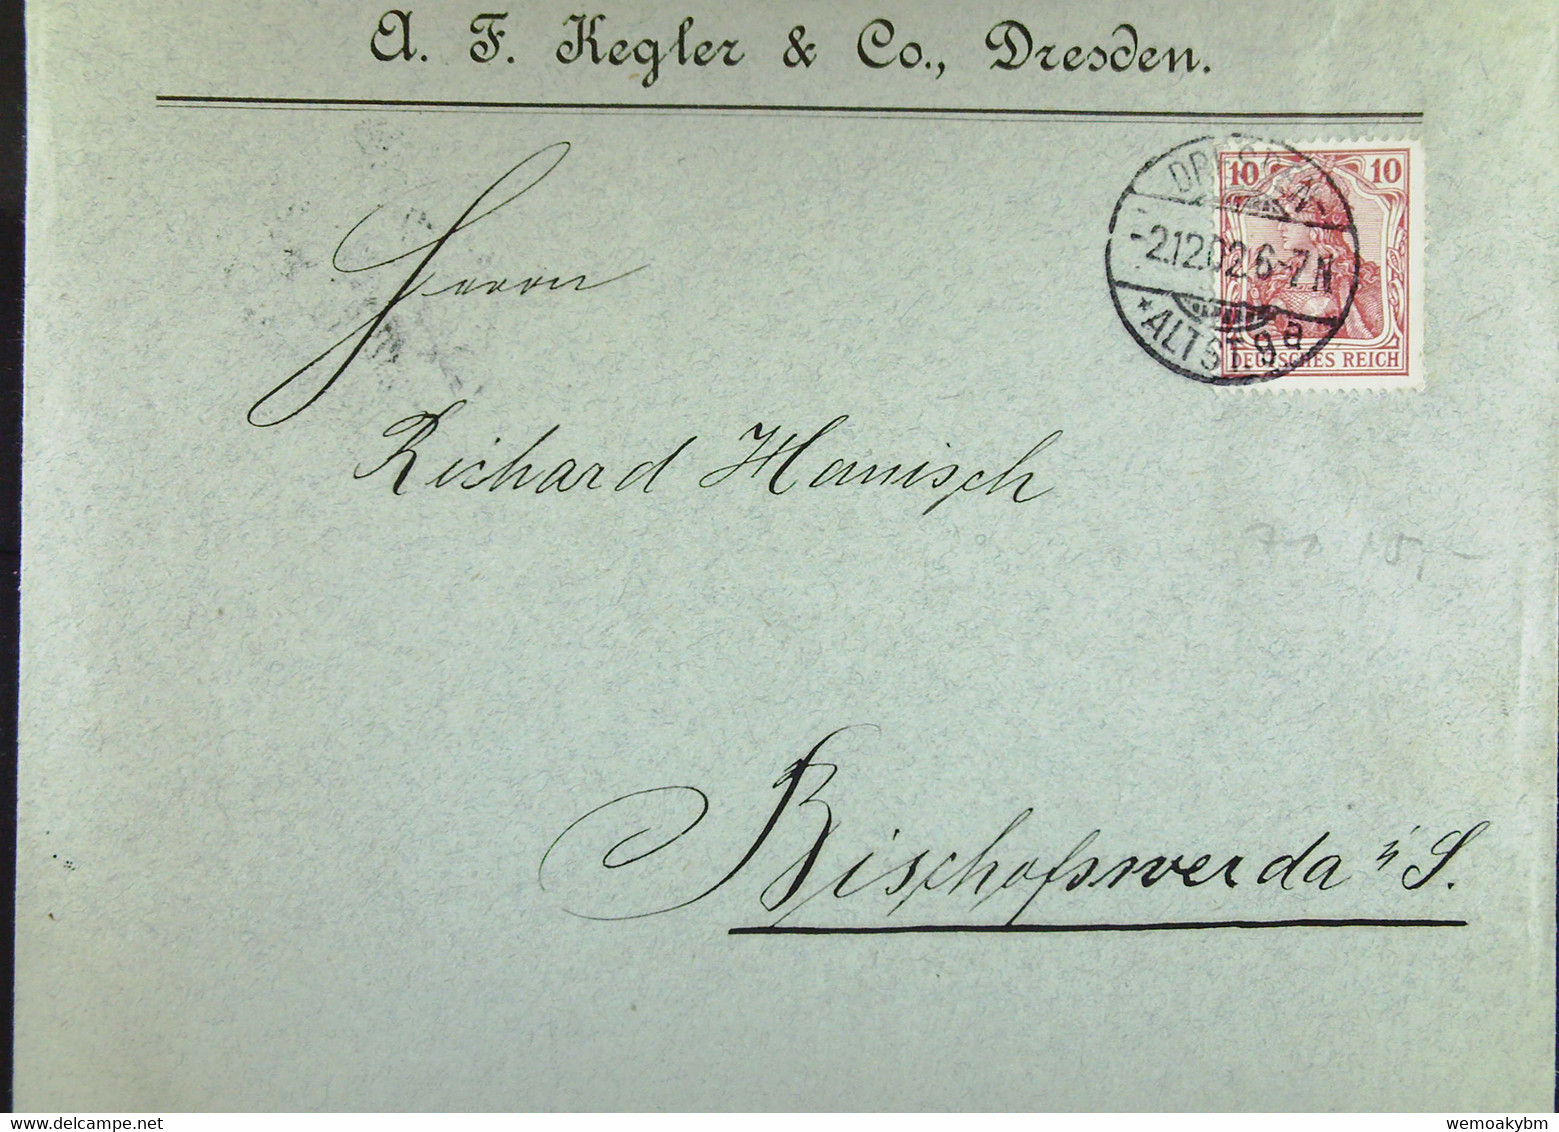 A. F. Kegler & Co., Dresden.
10 10
DRESDEN-
-2.12.02.6-7N
*ALTST.9a
DEUTSCHES REICH
Herrn
Richard Hanisch
Bischofswerda i/S.
wemoakybm